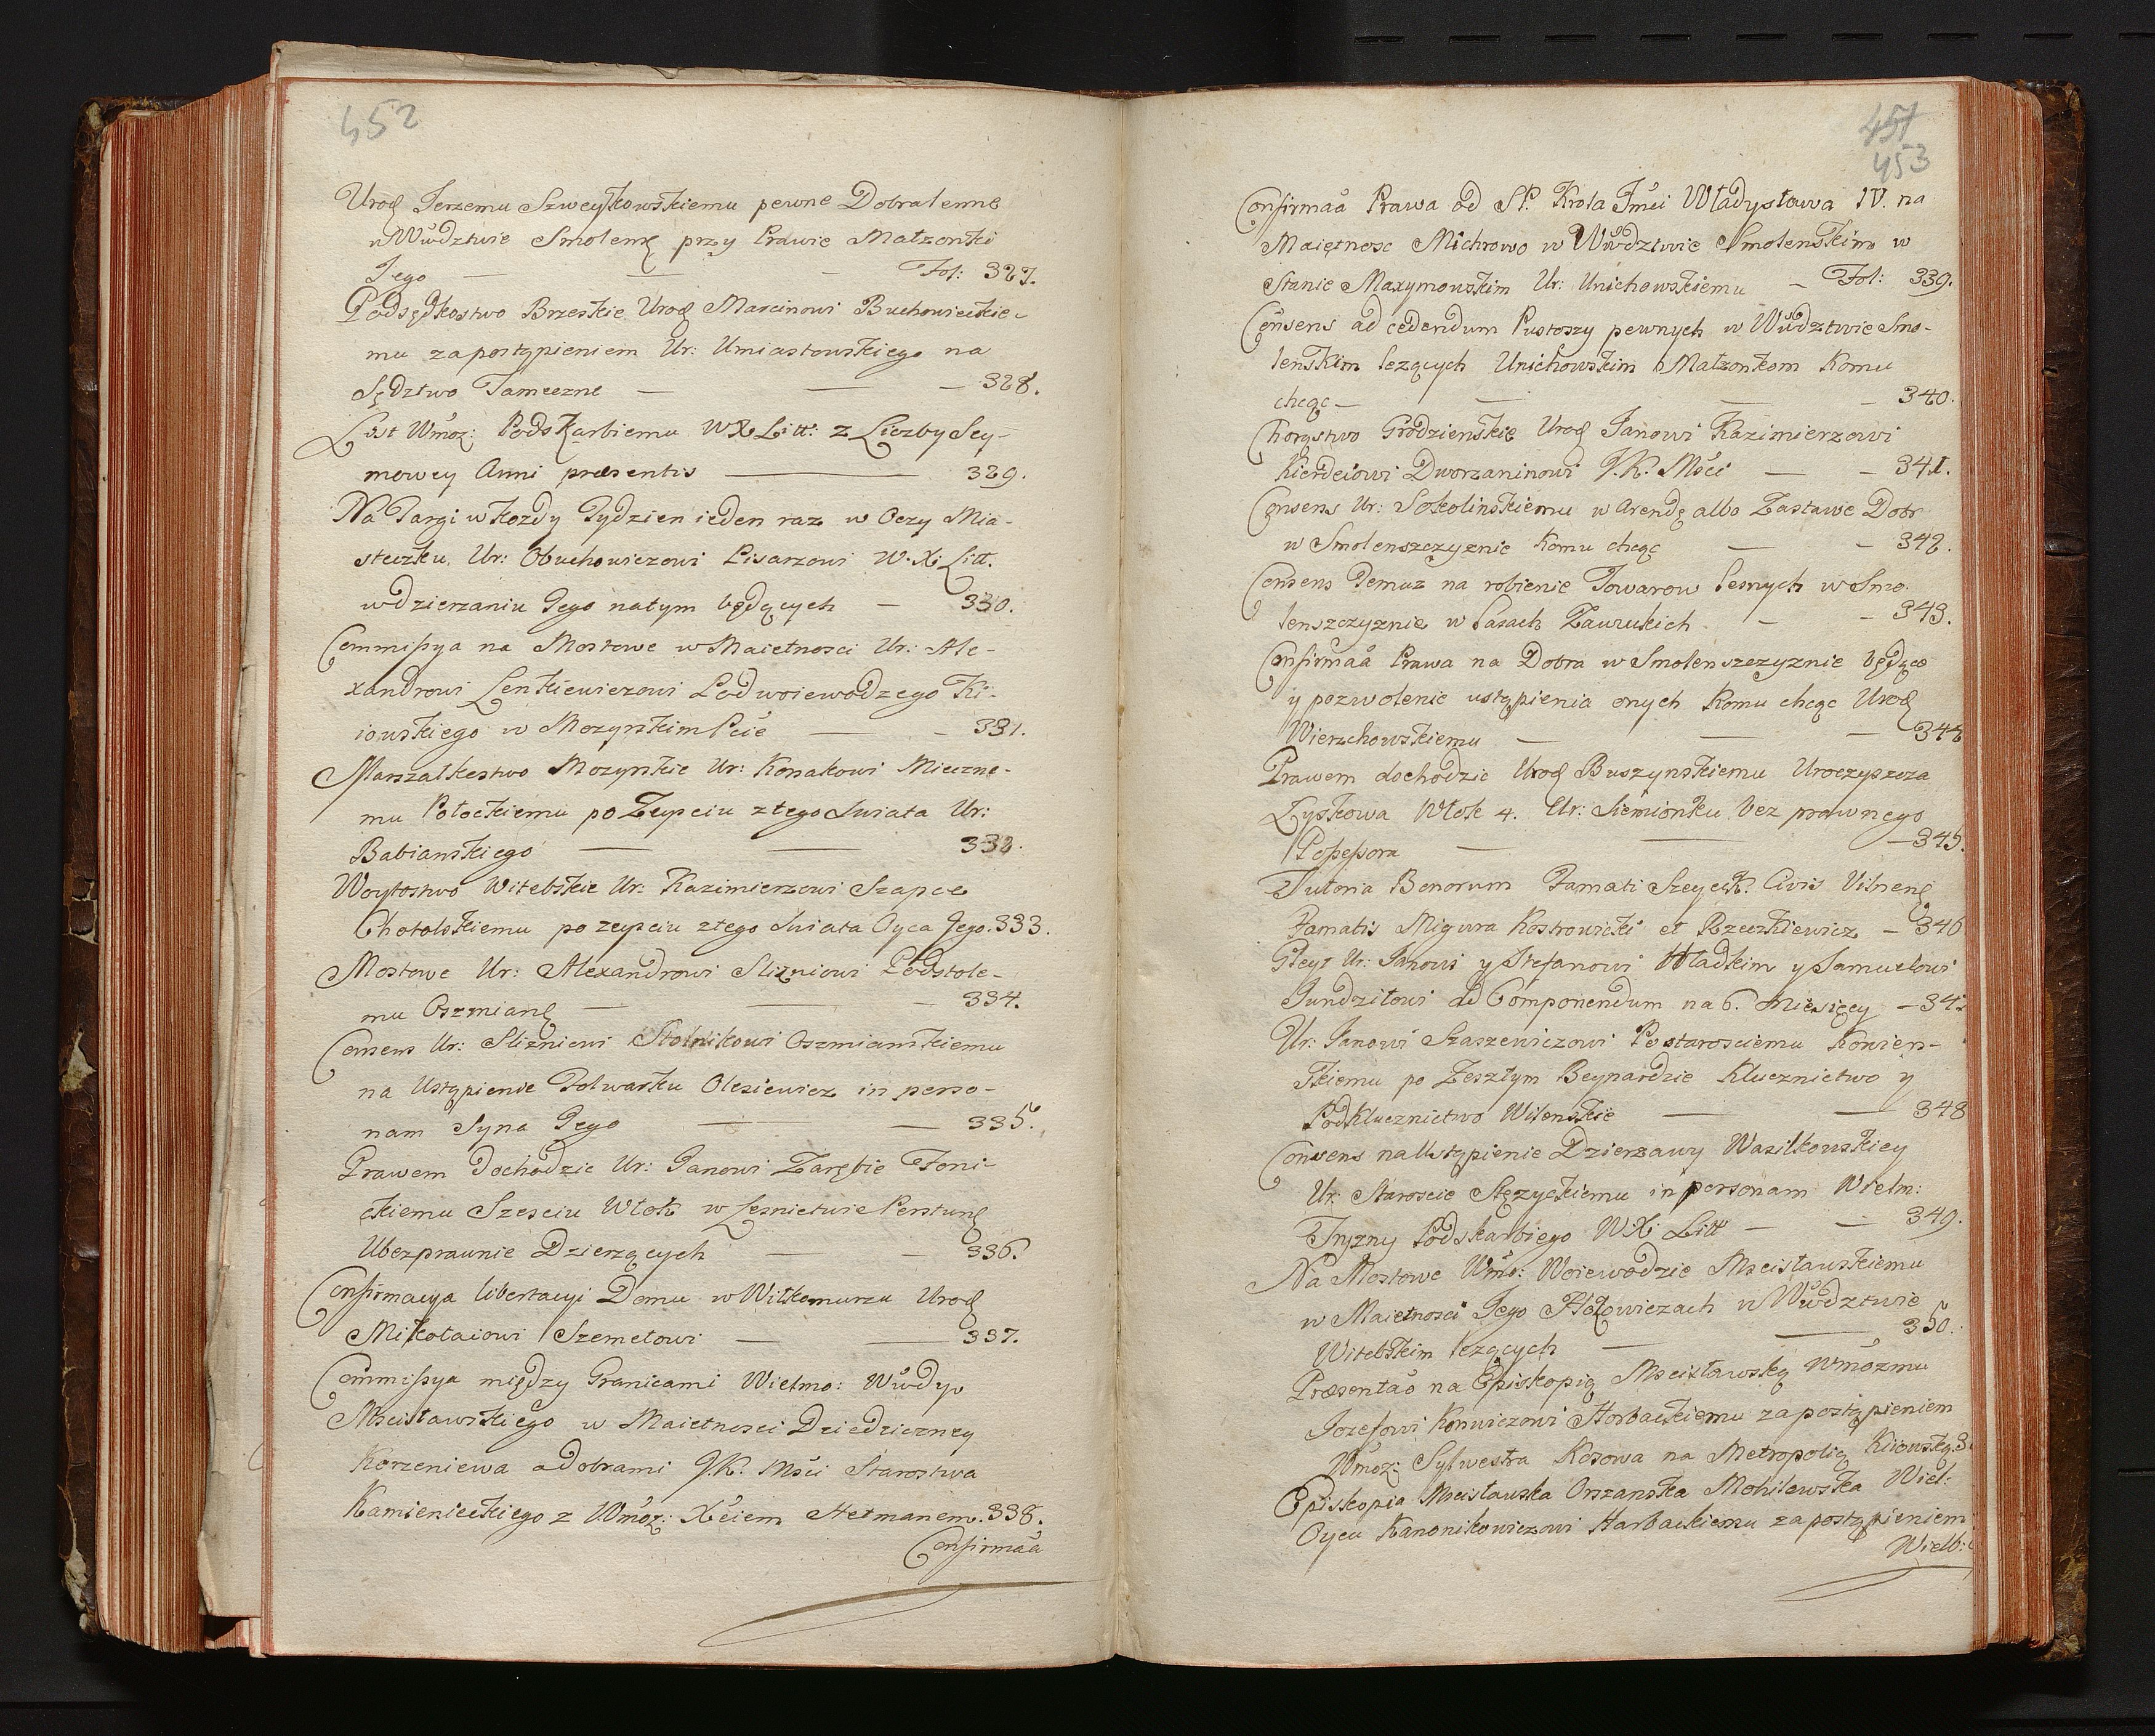 452
Urod Jerzemu Szweykowskiemu pewne Dobra lenne
w Wwdztwie Smolenę przy Prawie Małzonki
Jego — — — Fol: 327.
Podsędkostwo Brzeskie Urod Marcinowi Buchowieckie-
mu za postąpieniem Ur: Umiastowskiego na
Sędztwo Tameczne — — — 328.
List Wmoż: Podskarbiemu WXLitt: z Liczby Sey-
mowey Anni præsentis — 329.
Na Targi w kozdy Tydzien ieden raz w Oczy Mia-
steczku Ur: Obuchowiczowi Pisarzowi W.X. Litt.
w dzierzaniu Jego na tym będących — 330.
Commissya na Mostowe w Maietnosci Ur: Ale-
xandrowi Lenkiewiczowi Podwoiewodzego Ki-
iowskiego w Mozyrskim Pcie — — 331.
Marszałkostwo Mozyrskie Ur: Konakowi Mieczne-
mu Połockiemu po Zeyściu z tego Swiata Ur:
Babianskiego — — 332.
Woytostwo Witebskie Ur: Kazimierzowi Szapce
Chotolskiemu po zeyściu z tego Swiata Oyca Jego. 333.
Mostowe Ur: Alexandrowi Slizniowi Podstole-
mu Oszmianę — — — 334.
Consens Ur: Slizniowi Stolnikowi Oszmianskiemu
na Ustąpienie Folwarku Olesiewicz in perso-
nam Syna Jego — — 335.
Prawem Dochodzic Ur: Janowi Zarębie Foni-
ckiemu Szesciu Włok w Lesnictwie Perstunę
Ubezprawnie Dzierzących — — 336.
Confirmacya libertacyi Domu w Wiłkomurzu Urod
Mikołaiowi Szemetowi — — 337.
Commissya między Granicami Wielmo: Wwdy
Mscisławskiego w Maietnosci Dziedziczney
Korzeniewa a dobrami J.K. Mści Starostwa
Kamienieckiego z Wmoż: Xciem Hetmanem. 338.
Confirmaa

451
453
Confirmaa Prawa od SP. Krola Jmći Władysława IV. na
Maiętnosc Michrowo w Wwdztwie Smolenskim w
Stanie Maxymowskim Ur: Unichowskiemu — Fol: 339.
Consens ad cedendum Pustoszy pewnych w Wwdztwie Smo-
lenskim lezących Unichowskim Małzonkom Komu
chcąc — — — — 340.
Chorąstwo Grodzienskie Urod Janowi Kazimierzowi
Kierdeiowi Dworzaninowi J.K. Mści — — 341.
Consens Ur: Sokolinskiemu w Arendę albo Zastawe Dobr
w Smolenszczyznie Komu chcąc — — 342.
Consens Temuz na robienie Towarow lesnych w Smo-
lenszczyznie w Lasach Zawuckich — — 343.
Confirmaa Prawa na Dobra w Smolenszczyznie będące
y pozwolenie ustąpienia onych Komu chcąc Urod
Wierzchowskiemu — — — 344
Prawem dochodzic Urod Buszynskiemu Uroczyszcza
Zyskowa Włok 4. Ur: Siemionku bez prawnego
Possessora — — — 345.
Tutoria Bonorum Famati Szeyck. Civis Vilnenę
Famatis Migura Kostrowicki et Rzeczkiewicz — 346
Gleyt Ur: Janowi y Stefanowi Hładkim y Samuelowi
Jundziłowi ad Componendum na 6. Miesięcy — 34
Ur: Janowi Staszewiczowi Postarosciemu Kowien-
skiemu po Zeszłym Beynardzie Klucznictwo y
Podklucznictwo Wilenskie — — 348
Consens na Ustąpienie Dzierzawy Wasilkowskiey
Ur: Staroscie Stęzyckiemu in personam Wielm:
Tryzny Podskarbiego W.X. Litt — — 349.
Na Mostowe Wmo: Woiewodzie Mscisławskiemu
w Maietnosci Jego w Wwdztwie
Witebskim lezących — — 350.
Præsentao na Episkopią Mscisławską Wmożmu
Jozefowi Konwiczowi Horbackiemu za postąpieniem
Wmoż: Sylwestra Kosowa na Metropolią Kiiowską. 3
Episkopia Mscisławska Orszanska Mohilewska Wiel:
Oycu Kanonikowiczowi Harbackiemu za postąpieniem
Wielb: